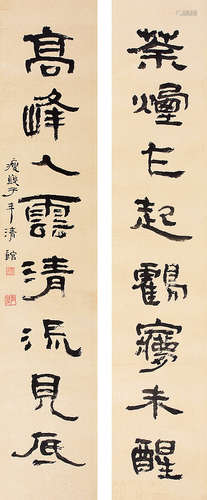 茶煙乍起鶴夢未醒
高峰入雲清流見底
瘦鐵